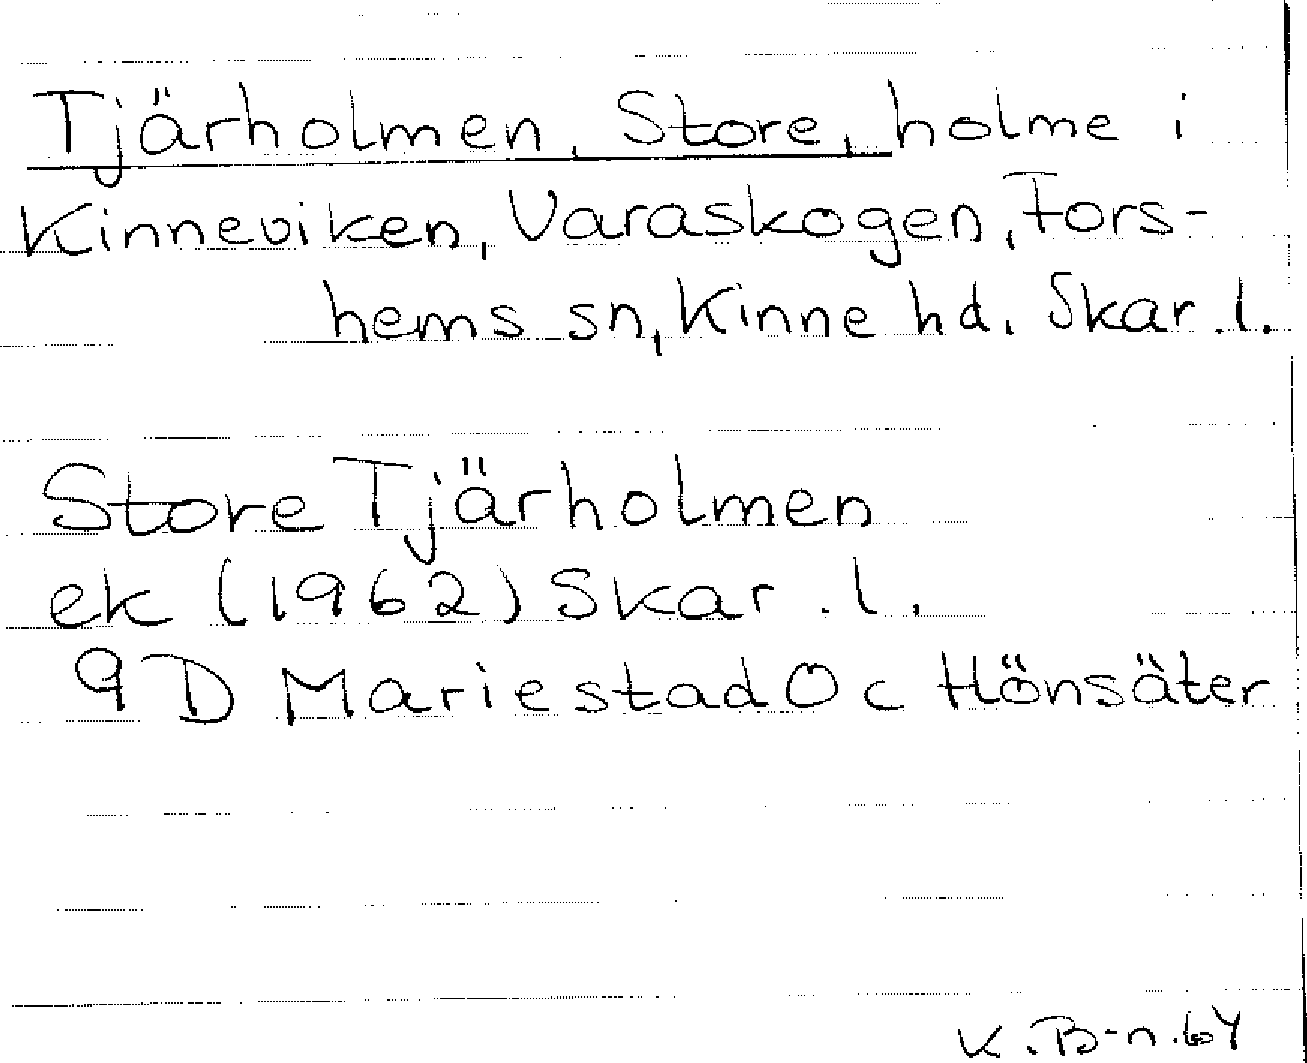 Tjärholmen, Store, holme i
Kinneviken, Varaskogen, Fors-
hems sn, Kinne hd. Skar. l.
Store Tjärholmen
ek (1962) Skar. l.
9 D Mariestad O c Hönsäter
K. B-n. 64